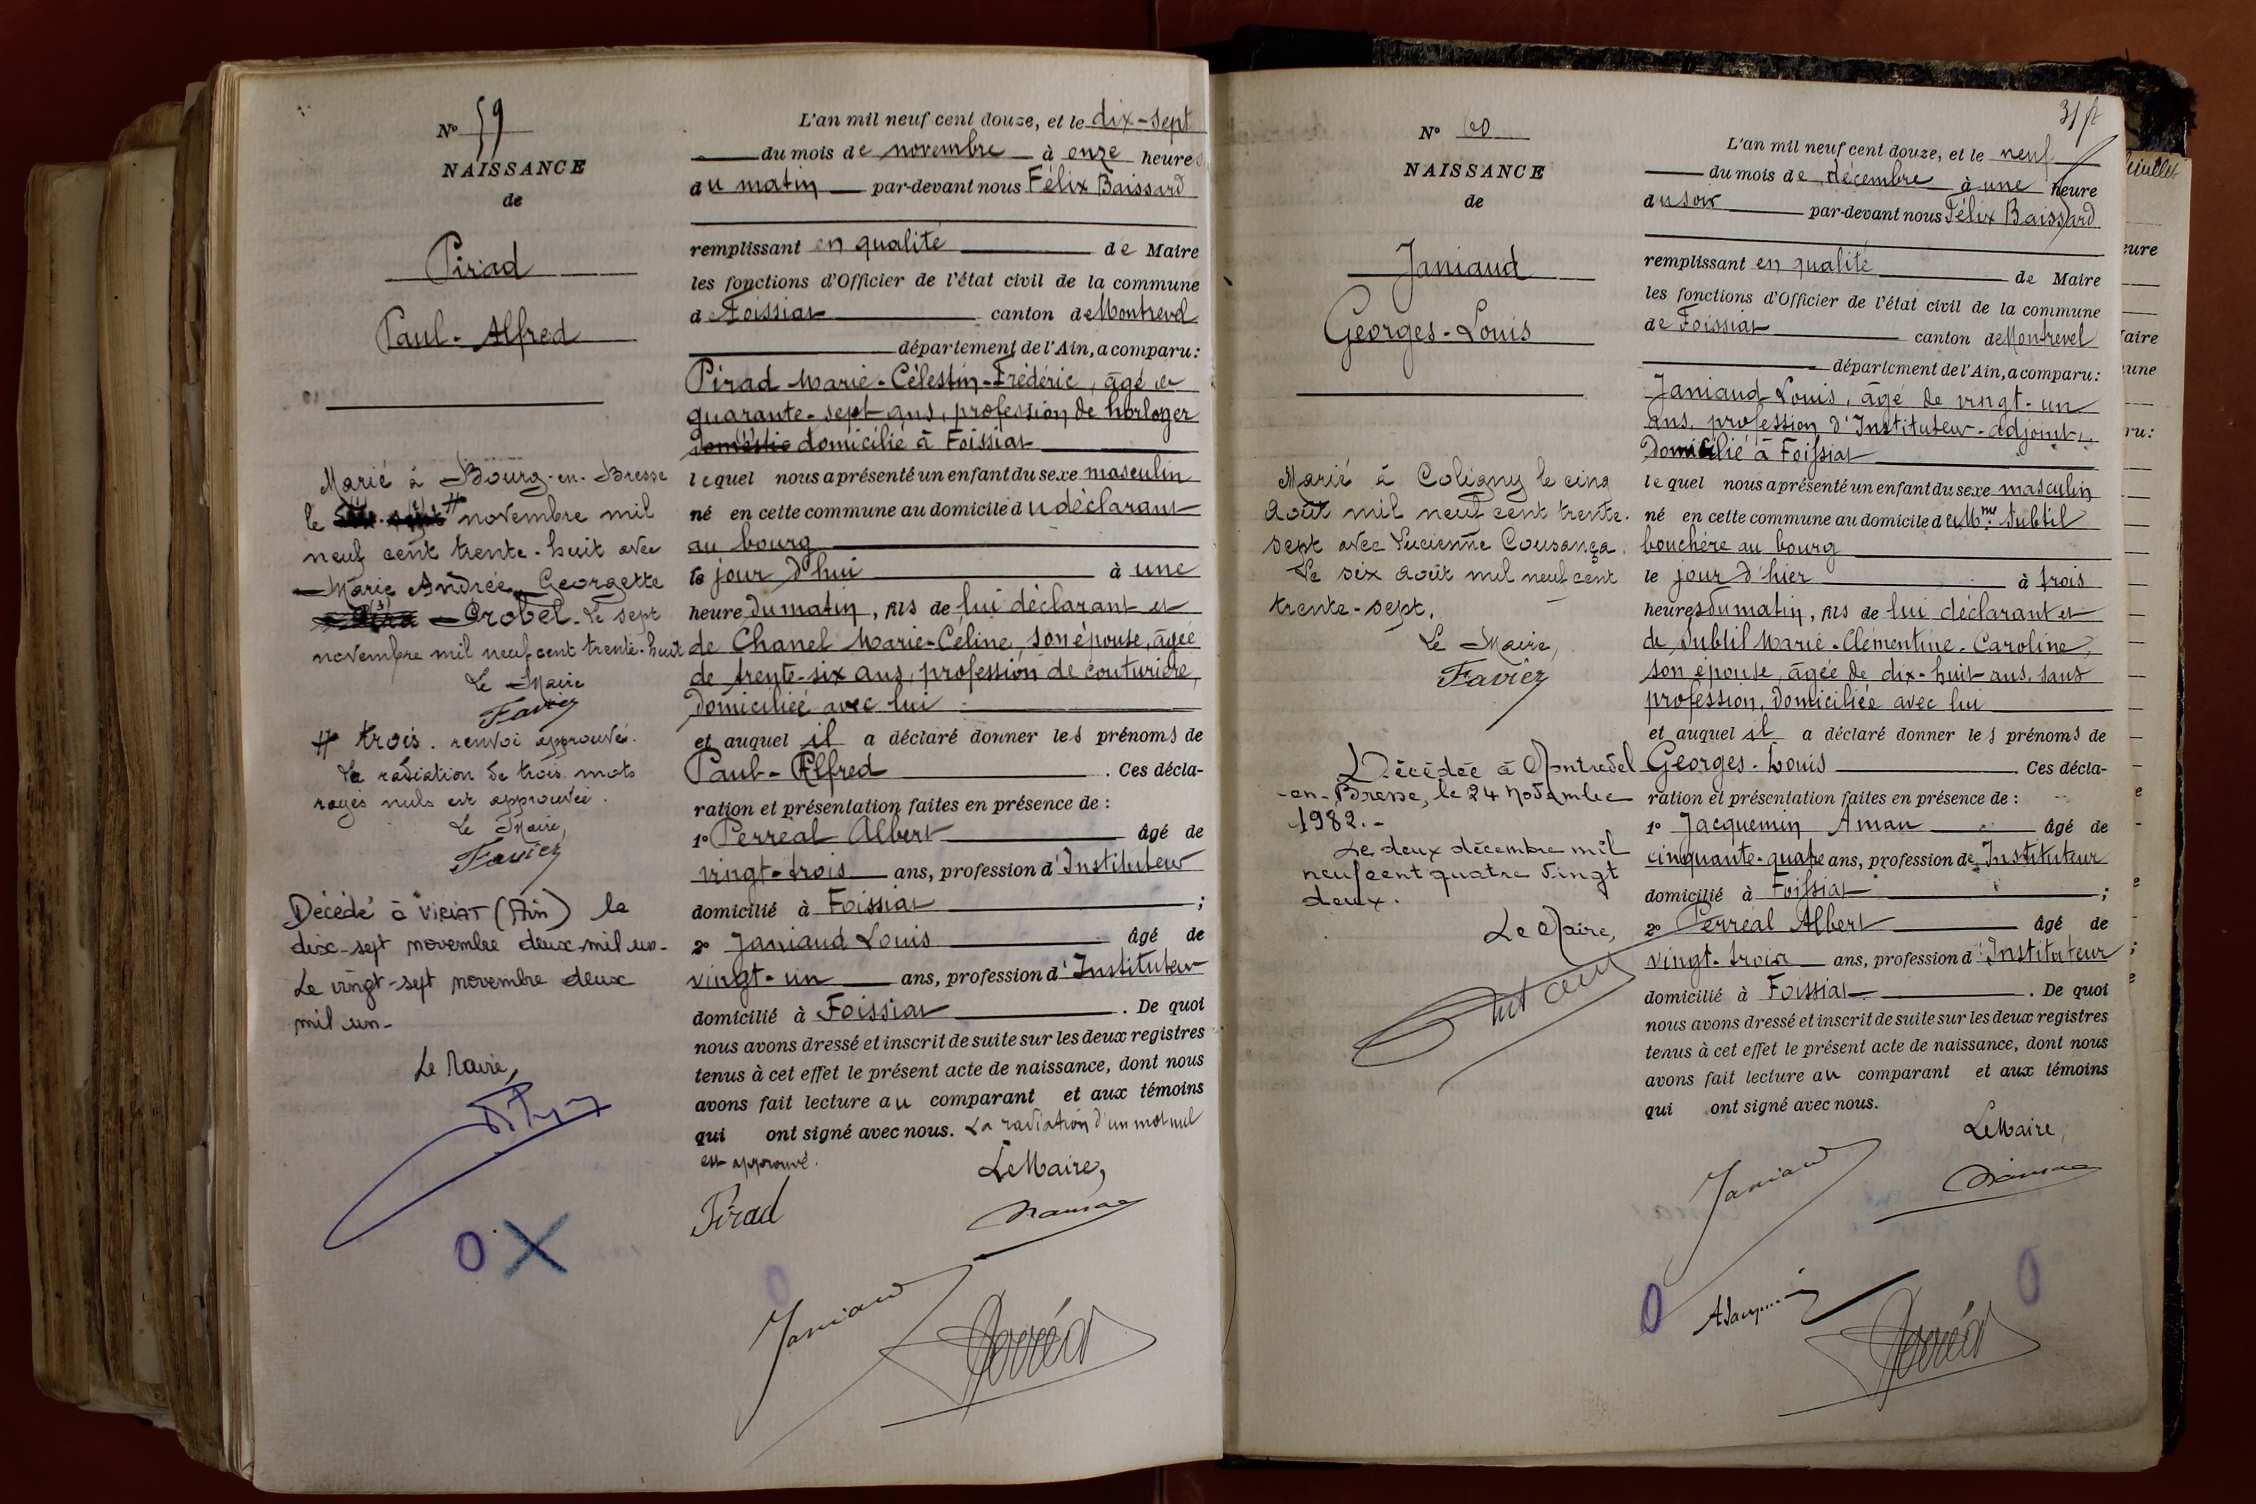 N° 59
NAISSANCE
de
Pirad
Paul-Alfred
Marié à Bourg-en-Bresse
le # novembre mil
neuf cent trente-huit avec
Marie Andrée Georgette
Crobet. Le sept
novembre mil neuf cent trente-huit
Le Maire
Favier
# trois. renvoi approuvé.
La radiation de trois mots
rayés nuls est approuvée.
Le Maire,
Favier
Décédé à VIRIAT (Ain) le
dix-sept novembre deux mil un-
Le vingt-sept novembre deux
mil un-
Le Maire,
O X
L'an mil neuf cent douze, et le dix-sept
du mois de novembre à onze heures
du matin par-devant nous Félix Baissard
remplissant en qualité de Maire
les fonctions d'Officier de l'état civil de la commune
de Foissiat canton de Montrevel
département de l'Ain, a comparu:
Pirad Marie-Célestin-Frédéric, âgé de
quarante-sept ans, profession de horloger
domicilié à Foissiat
lequel nous a présenté un enfant du sexe masculin
né en cette commune au domicile du déclarant
au bourg
le jour d'hui à une
heure du matin, fils de lui déclarant et
de Chanel Marie-Céline, son épouse, âgée
de trente-six ans, profession de couturière,
domiciliée avec lui
et auquel il a déclaré donner les prénoms de
Paul-Alfred. Ces décla-
ration et présentation faites en présence de:
1° Perréal Albert âgé de
vingt-trois ans, profession d'Instituteur
domicilié à Foissiat;
2° Janiaud Louis âgé de
vingt-un ans, profession d'Instituteur
domicilié à Foissiat. De quoi
nous avons dressé et inscrit de suite sur les deux registres
tenus à cet effet le présent acte de naissance, dont nous
avons fait lecture au comparant et aux témoins
qui ont signé avec nous. La radiation d'un mot nul
est approuvé.
Le Maire,
Pirad
Janiaud
Perréal
31 ft
N° 60
NAISSANCE
de
Janiaud
Georges-Louis
Marié à Coligny le cinq
août mil neuf cent trente-
sept avec Lucienne Cousança.
Le six août mil neuf cent
trente-sept.
Le Maire,
Favier
Décédée à Montrevel
-en-Bresse, le 24 Novembre
1982.-
Le deux décembre mil
neuf cent quatre vingt
deux.
Le Maire,
L'an mil neuf cent douze, et le neuf
du mois de décembre à une heure
du soir par-devant nous Félix Baissard
remplissant en qualité de Maire
les fonctions d'Officier de l'état civil de la commune
de Foissiat canton de Montrevel
département de l'Ain, a comparu:
Janiaud Louis, âgé de vingt-un
ans, profession d'Instituteur-adjoint,
Domicilié à Foissiat
lequel nous a présenté un enfant du sexe masculin
né en cette commune au domicile de Mme Subtil
bouchère au bourg
le jour d'hier à trois
heures du matin, fils de lui déclarant et
de Subtil Marie-Clémentine-Caroline,
son épouse, âgée de dix-huit ans, sans
profession, domiciliée avec lui
et auquel il a déclaré donner les prénoms de
Georges-Louis. Ces décla-
ration et présentation faites en présence de:
1° Jacquemin Aman âgé de
cinquante-quatre ans, profession de Instituteur
domicilié à Foissiat;
2° Perréal Albert âgé de
vingt-trois ans, profession d'Instituteur
domicilié à Foissiat. De quoi
nous avons dressé et inscrit de suite sur les deux registres
tenus à cet effet le présent acte de naissance, dont nous
avons fait lecture au comparant et aux témoins
qui ont signé avec nous.
Le Maire,
Janiaud
Perréal
feuillet
eure
Maire
une
ru: